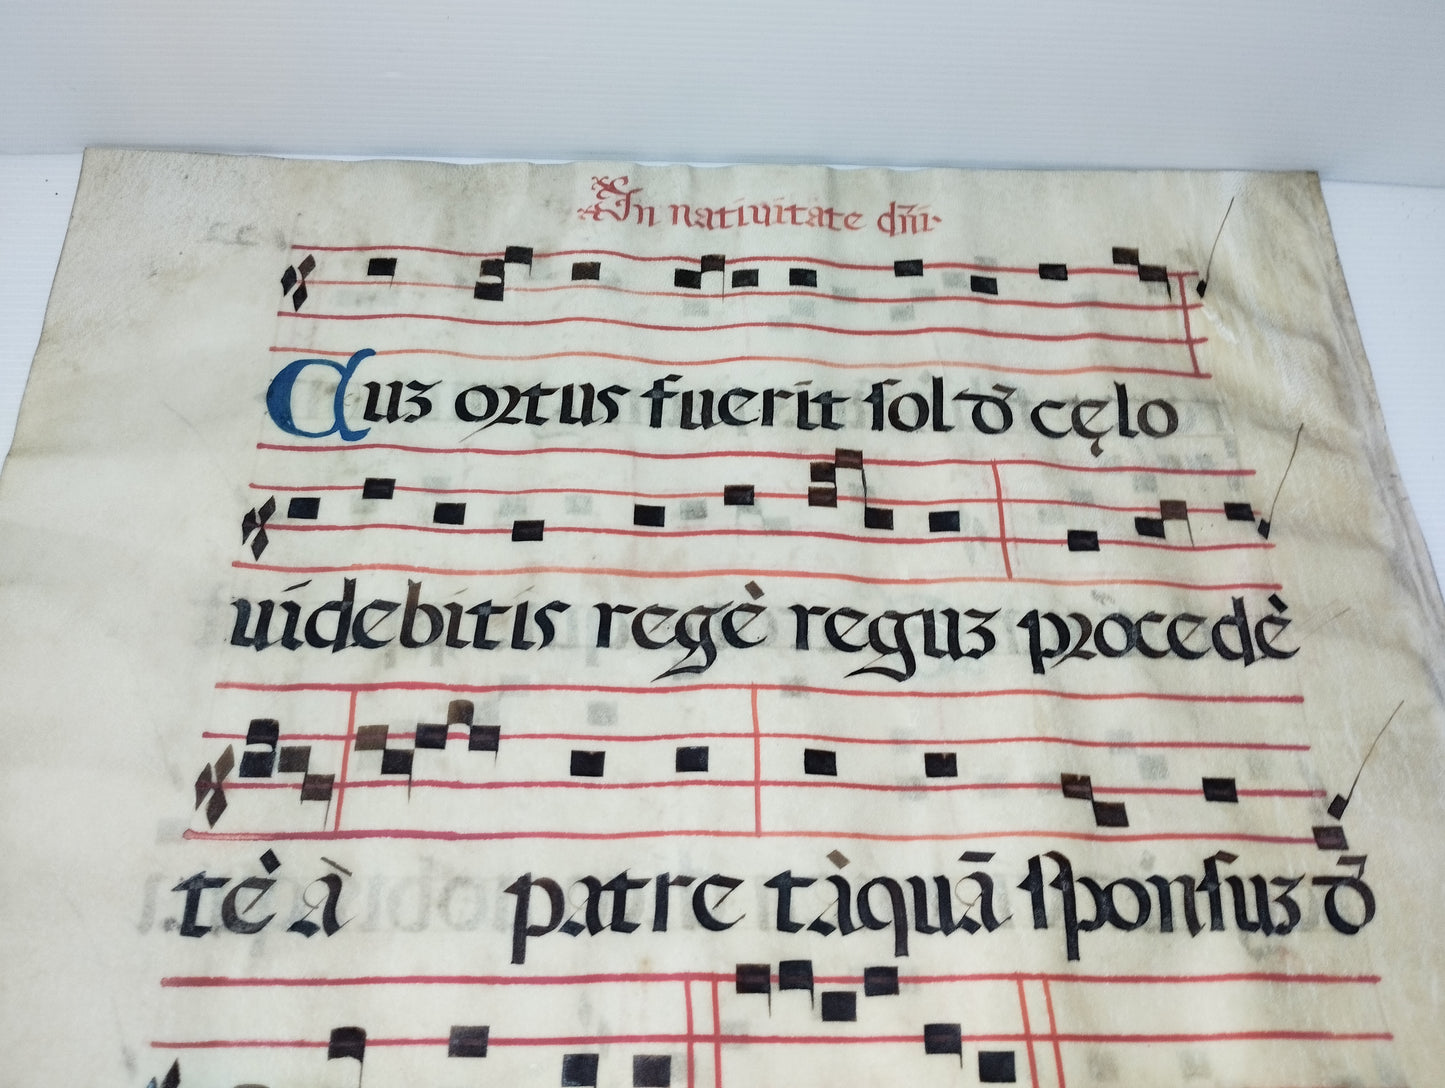 In natiuitate dñi·
Cuʒ ortus fuerit sol đ cęlo
uidebitis regè reguʒ procedè
tè à patre tàquā sponsuʒ đ